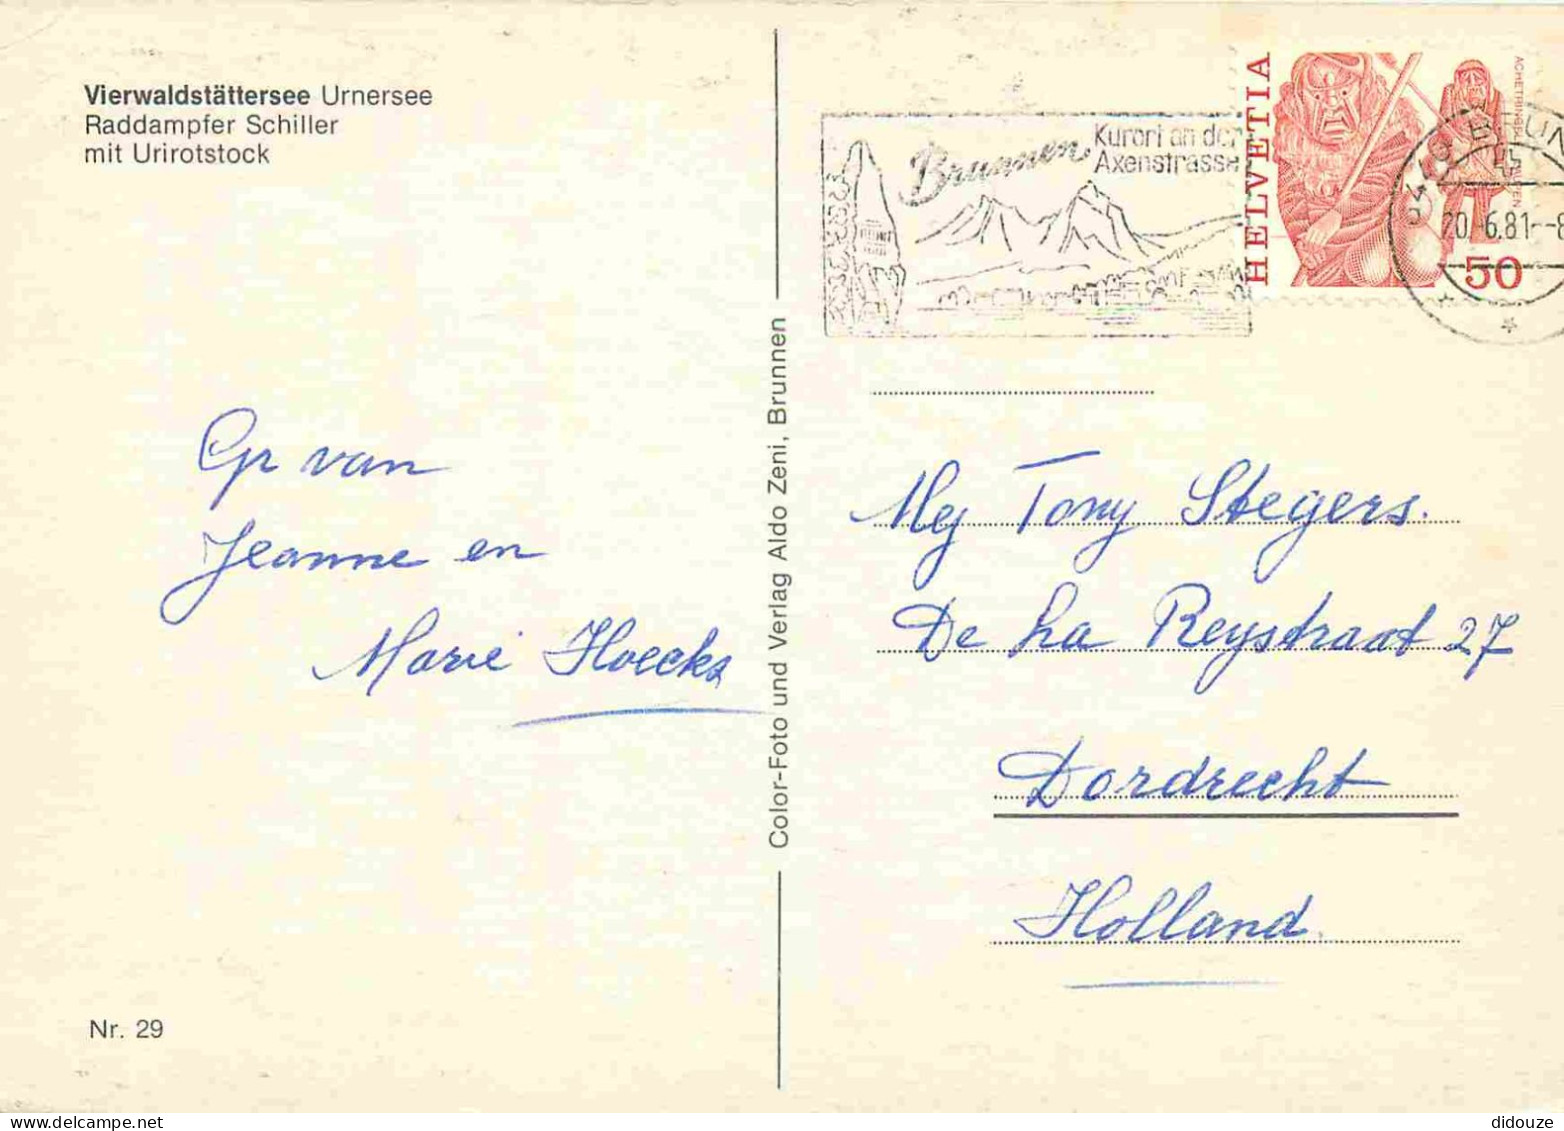 Vierwaldstättersee Urnersee
Raddampfer Schiller
mit Urirotstock
Gr van
Jeanne en
Marie Hoecks
Nr. 29
Color-Foto und Verlag Aldo Zeni, Brunnen
Brunnen
Kurort an der
Axenstrasse
HELVETIA
50
6440 BRUN
20.-6.81--8
Mej Tony Stegers.
De La Reystraat 27
Dordrecht
Holland
didouze